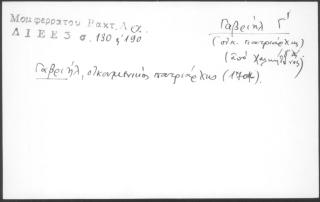 Μομφερράτου Βακτ. Λα.
ΔΙΕΕ 3 σ. 180, 190
Γαβριήλ Γ'
(οἰκ. πατριάρχης)
(ἀπό Χαλκηδόνος)
Γαβριήλ, οἰκουμενικός πατριάρχης (1704.